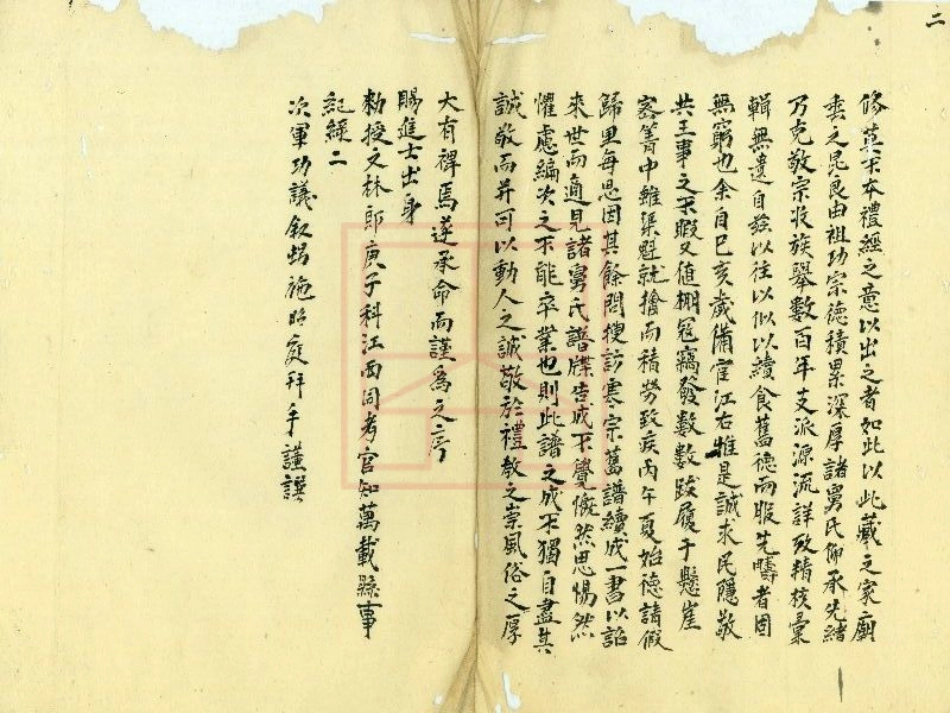 二
修莫不本禮經之意以出之者如此以此藏之家廟
垂之昆良由祖功宗德積累深厚諸舅氏仰承先緒
乃克敬宗收族舉數百年支派源流詳攷精核彙
輯無遺自茲以往以似以續食舊德而服先疇者固
無窮也余自巳亥歲備官江右惟是誠求民隱敬
共王事之不暇又值棚寇竊發數數跋履于懸崖
密箐中雖渠魁就擒而積勞致疾丙午夏始德請假
歸里每思因其餘問搜訪雲宗舊譜續成一書以詔
來世而適見諸舅氏譜牒告成不覺慨然思惕然
懼慮編次之不能卒業也則此譜之成不獨自盡其
誠敬而并可以動人之誠敬於禮教之崇風俗之厚
大有裨焉遂承命而謹為之序
賜進士出身
勑授文林郎庚子科江西同考官知萬載縣事
紀錄二
次軍功議敘甥施昭庭拜手謹譔